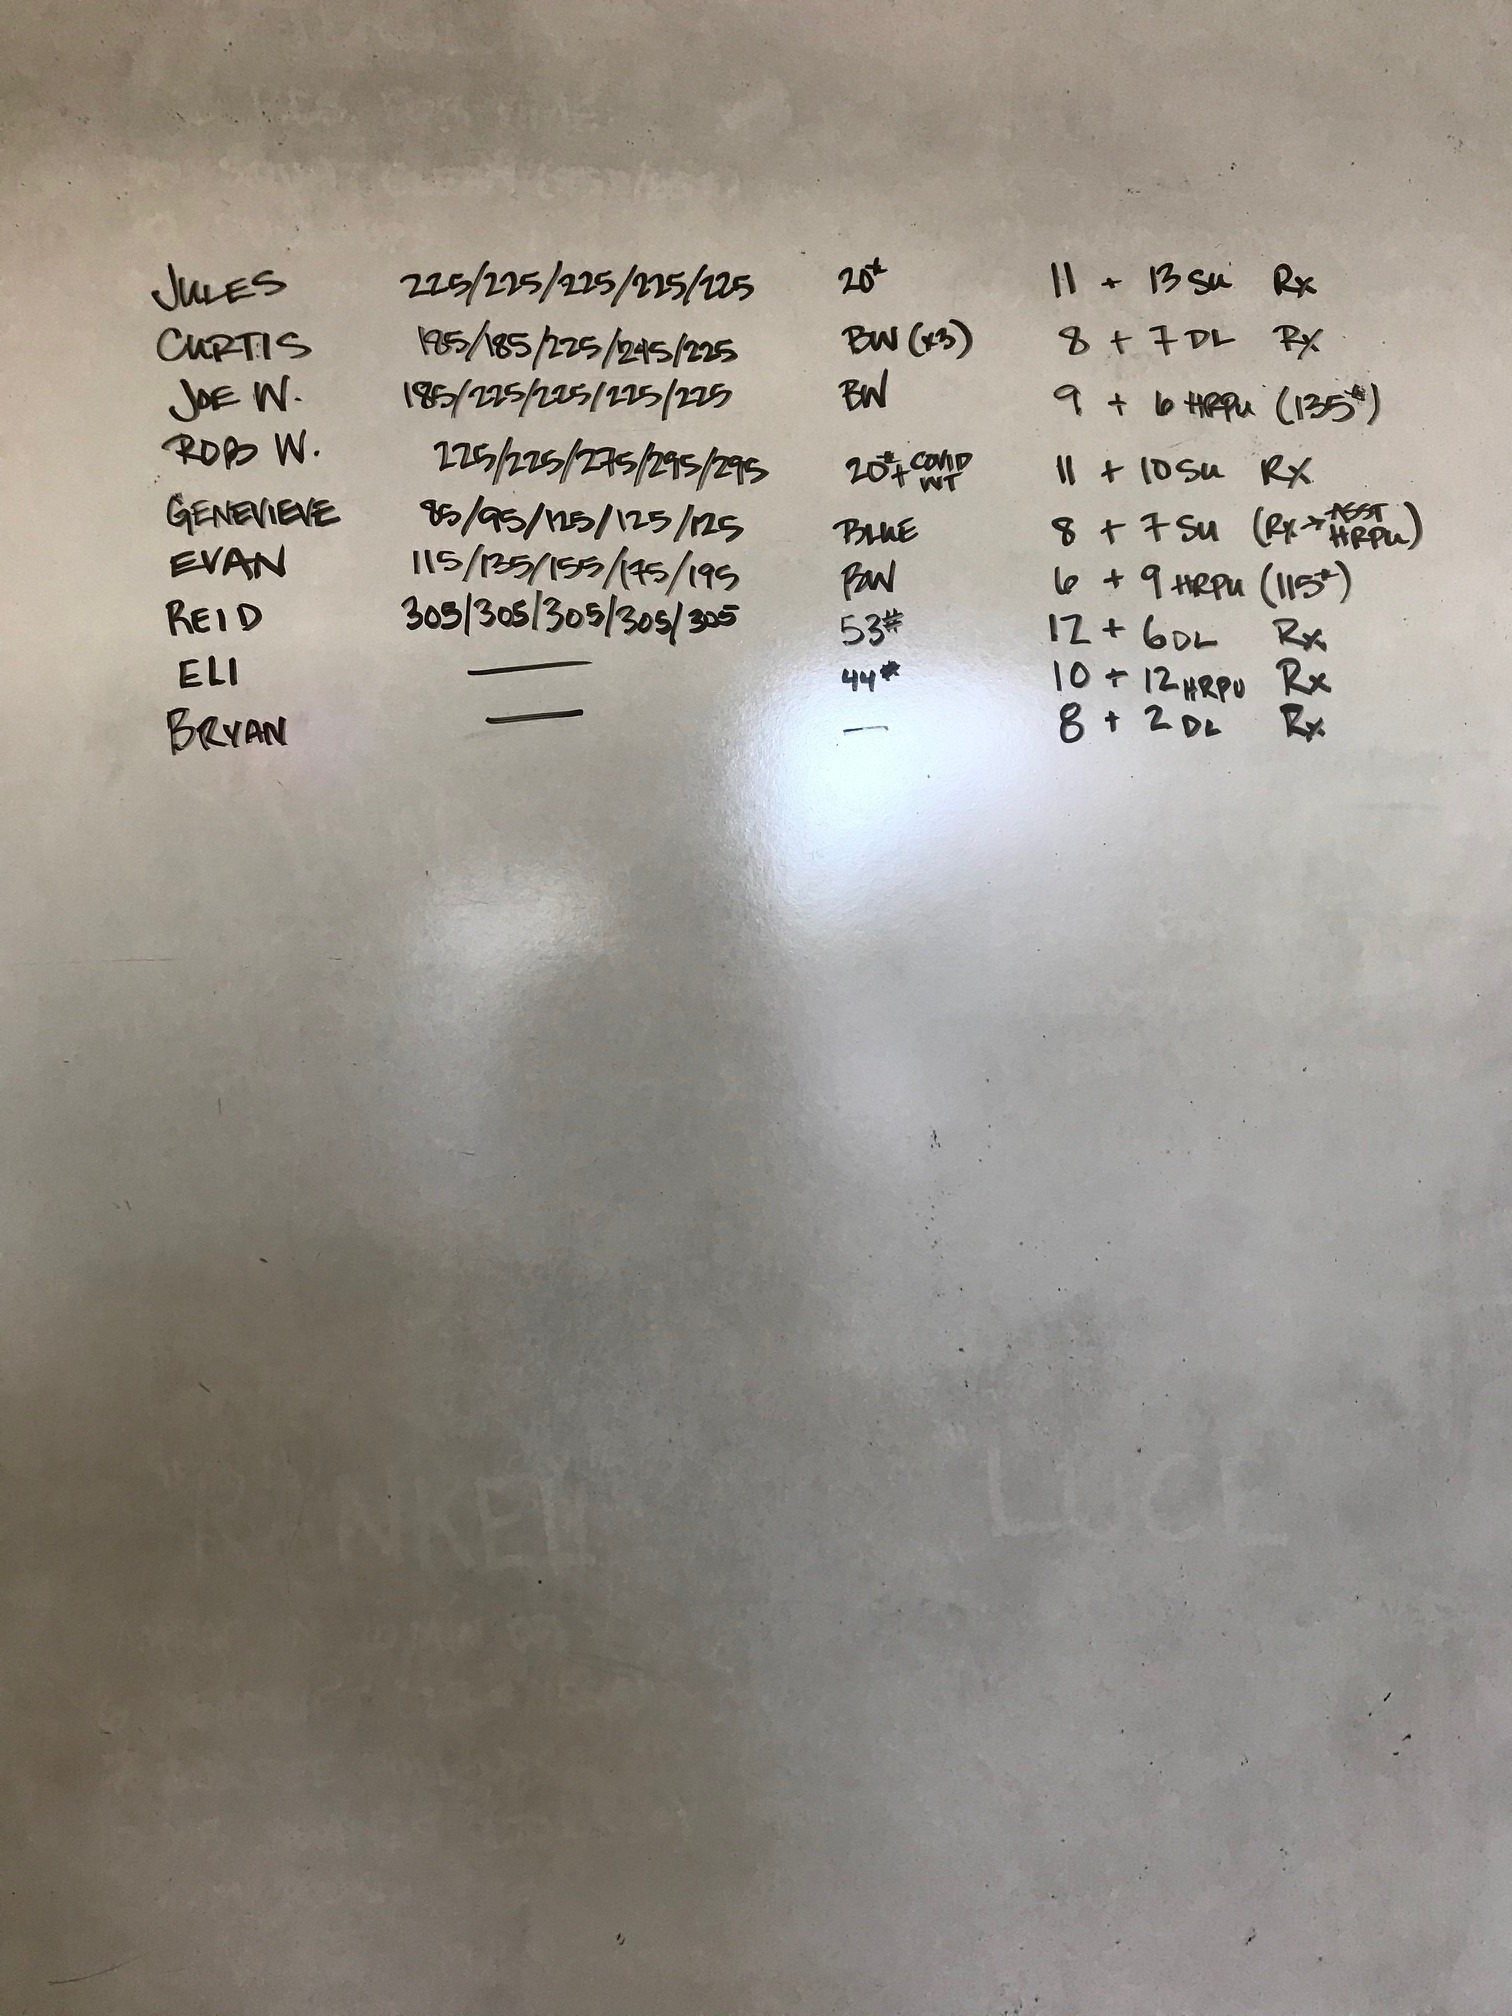 JULES 225/225/225/225/225 20# 11 + 13 SU Rx
CURTIS 185/185/225/245/225 BW (x3) 8 + 7 DL Rx
JOE W. 185/225/225/225/225 BW 9 + 6 HRPU (135#)
ROB W. 225/225/275/295/295 20# + COVID WT 11 + 10 SU RX
GENEVIEVE 85/95/125/125/125 BLUE 8 + 7 SU (Rx → ASST HRPU)
EVAN 115/135/155/175/195 BW 6 + 9 HRPU (115#)
REID 305/305/305/305/305 53# 12 + 6 DL Rx
ELI — 44# 10 + 12 HRPU Rx
BRYAN — — 8 + 2 DL Rx
LUCE